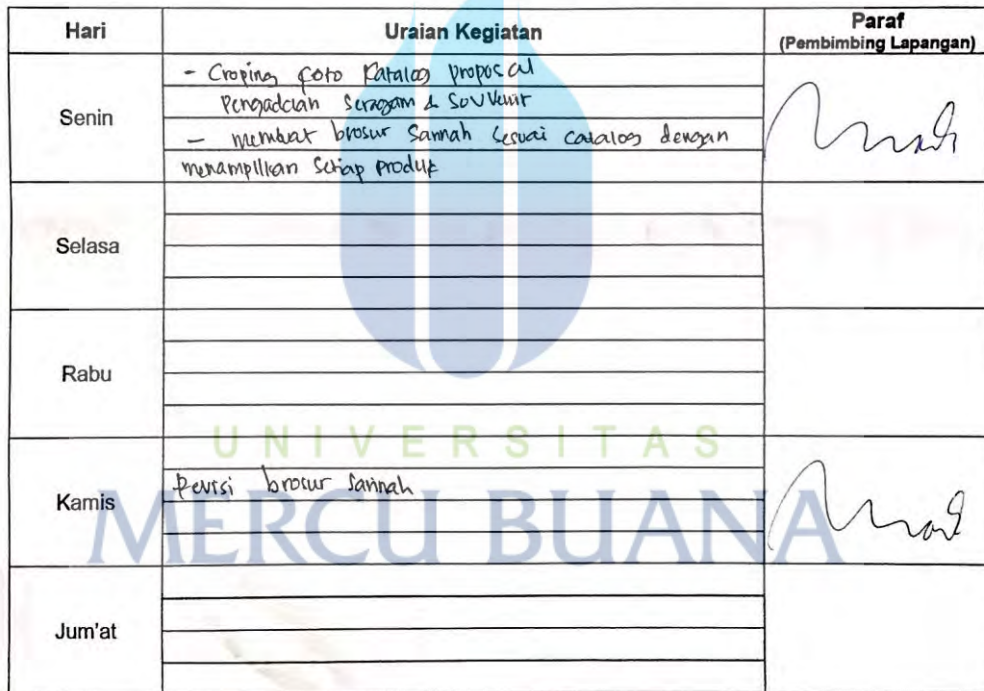 Hari Uraian Kegiatan Paraf
(Pembimbing Lapangan)
Senin
- Croping foto Katalog proposal
Pengadaian Seragam & Souvenir
- membuat brosur Sannah sesuai catalog dengan
menampilkan Setiap produk
Selasa
Rabu
UNIVERSITAS
Kamis
Revisi brosur Sannah
MERCU BUANA
Jum'at